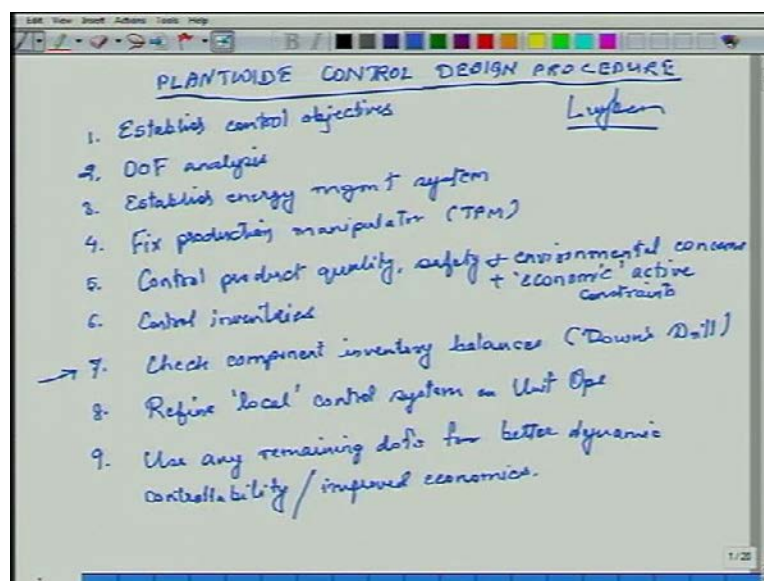 Edit View Insert Actions Tools Help
PLANTWIDE CONTROL DESIGN PROCEDURE
Luyben
1. Establish control objectives
2. DOF analysis
3. Establish energy mgmt system
4. Fix production manipulator (TPM)
5. Control product quality, safety + environmental concerns
+ 'economic' active
constraints
6. Control inventories
→ 7. Check component inventory balances (Down's Drill)
8. Refine 'local' control system on Unit Ops
9. Use any remaining dofs for better dynamic
controllability / improved economics.
1/20